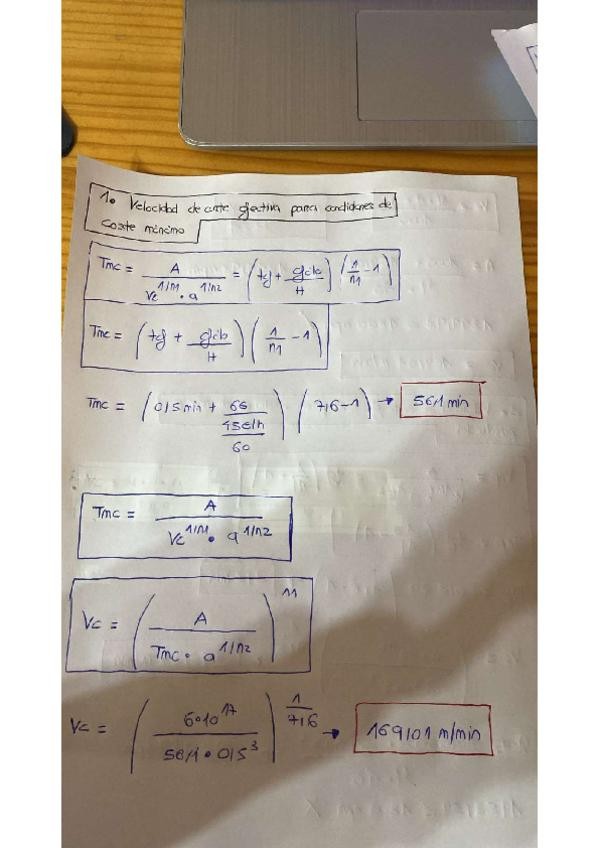 1. Velocidad de corte efectiva para condiciones de
coste mínimo
Tmc = A / (Vc^1/n1 • a^1/n2) = (tcf + gcb/H) (1/n1 - 1)
Tmc = (tcf + gcb/H) (1/n1 - 1)
Tmc = (0,5 min + 6€ / (45€/h / 60)) (7,6-1) → 56,1 min
Tmc = A / (Vc^1/n1 • a^1/n2)
Vc = (A / (Tmc • a^1/n2))^n1
Vc = (6•10^17 / (56,1 • 0,5^3))^1/7,6 → 169,01 m/min